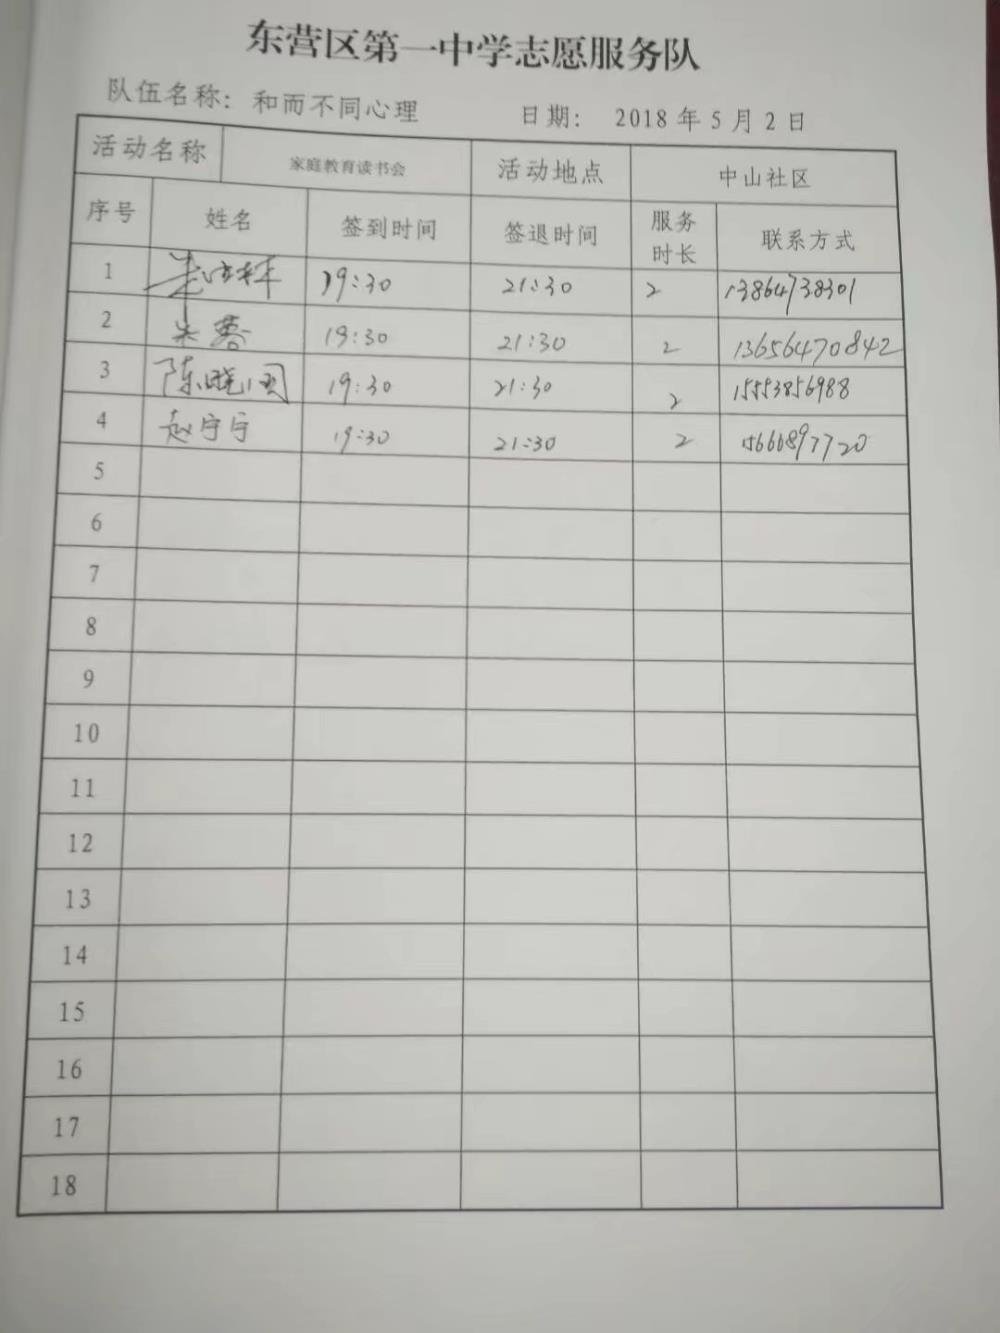 东营区第一中学志愿服务队
队伍名称：和而不同心理 日期： 2018年5月2日
活动名称 家庭教育读书会 活动地点 中山社区
序号 姓名 签到时间 签退时间 服务时长 联系方式
1 19:30 21:30 2 13864738301
2 朱蓉 19:30 21:30 2 13656470842
3 陈晓闵 19:30 21:30 2 15553856988
4 赵宁宁 19:30 21:30 2 15666897720
5
6
7
8
9
10
11
12
13
14
15
16
17
18